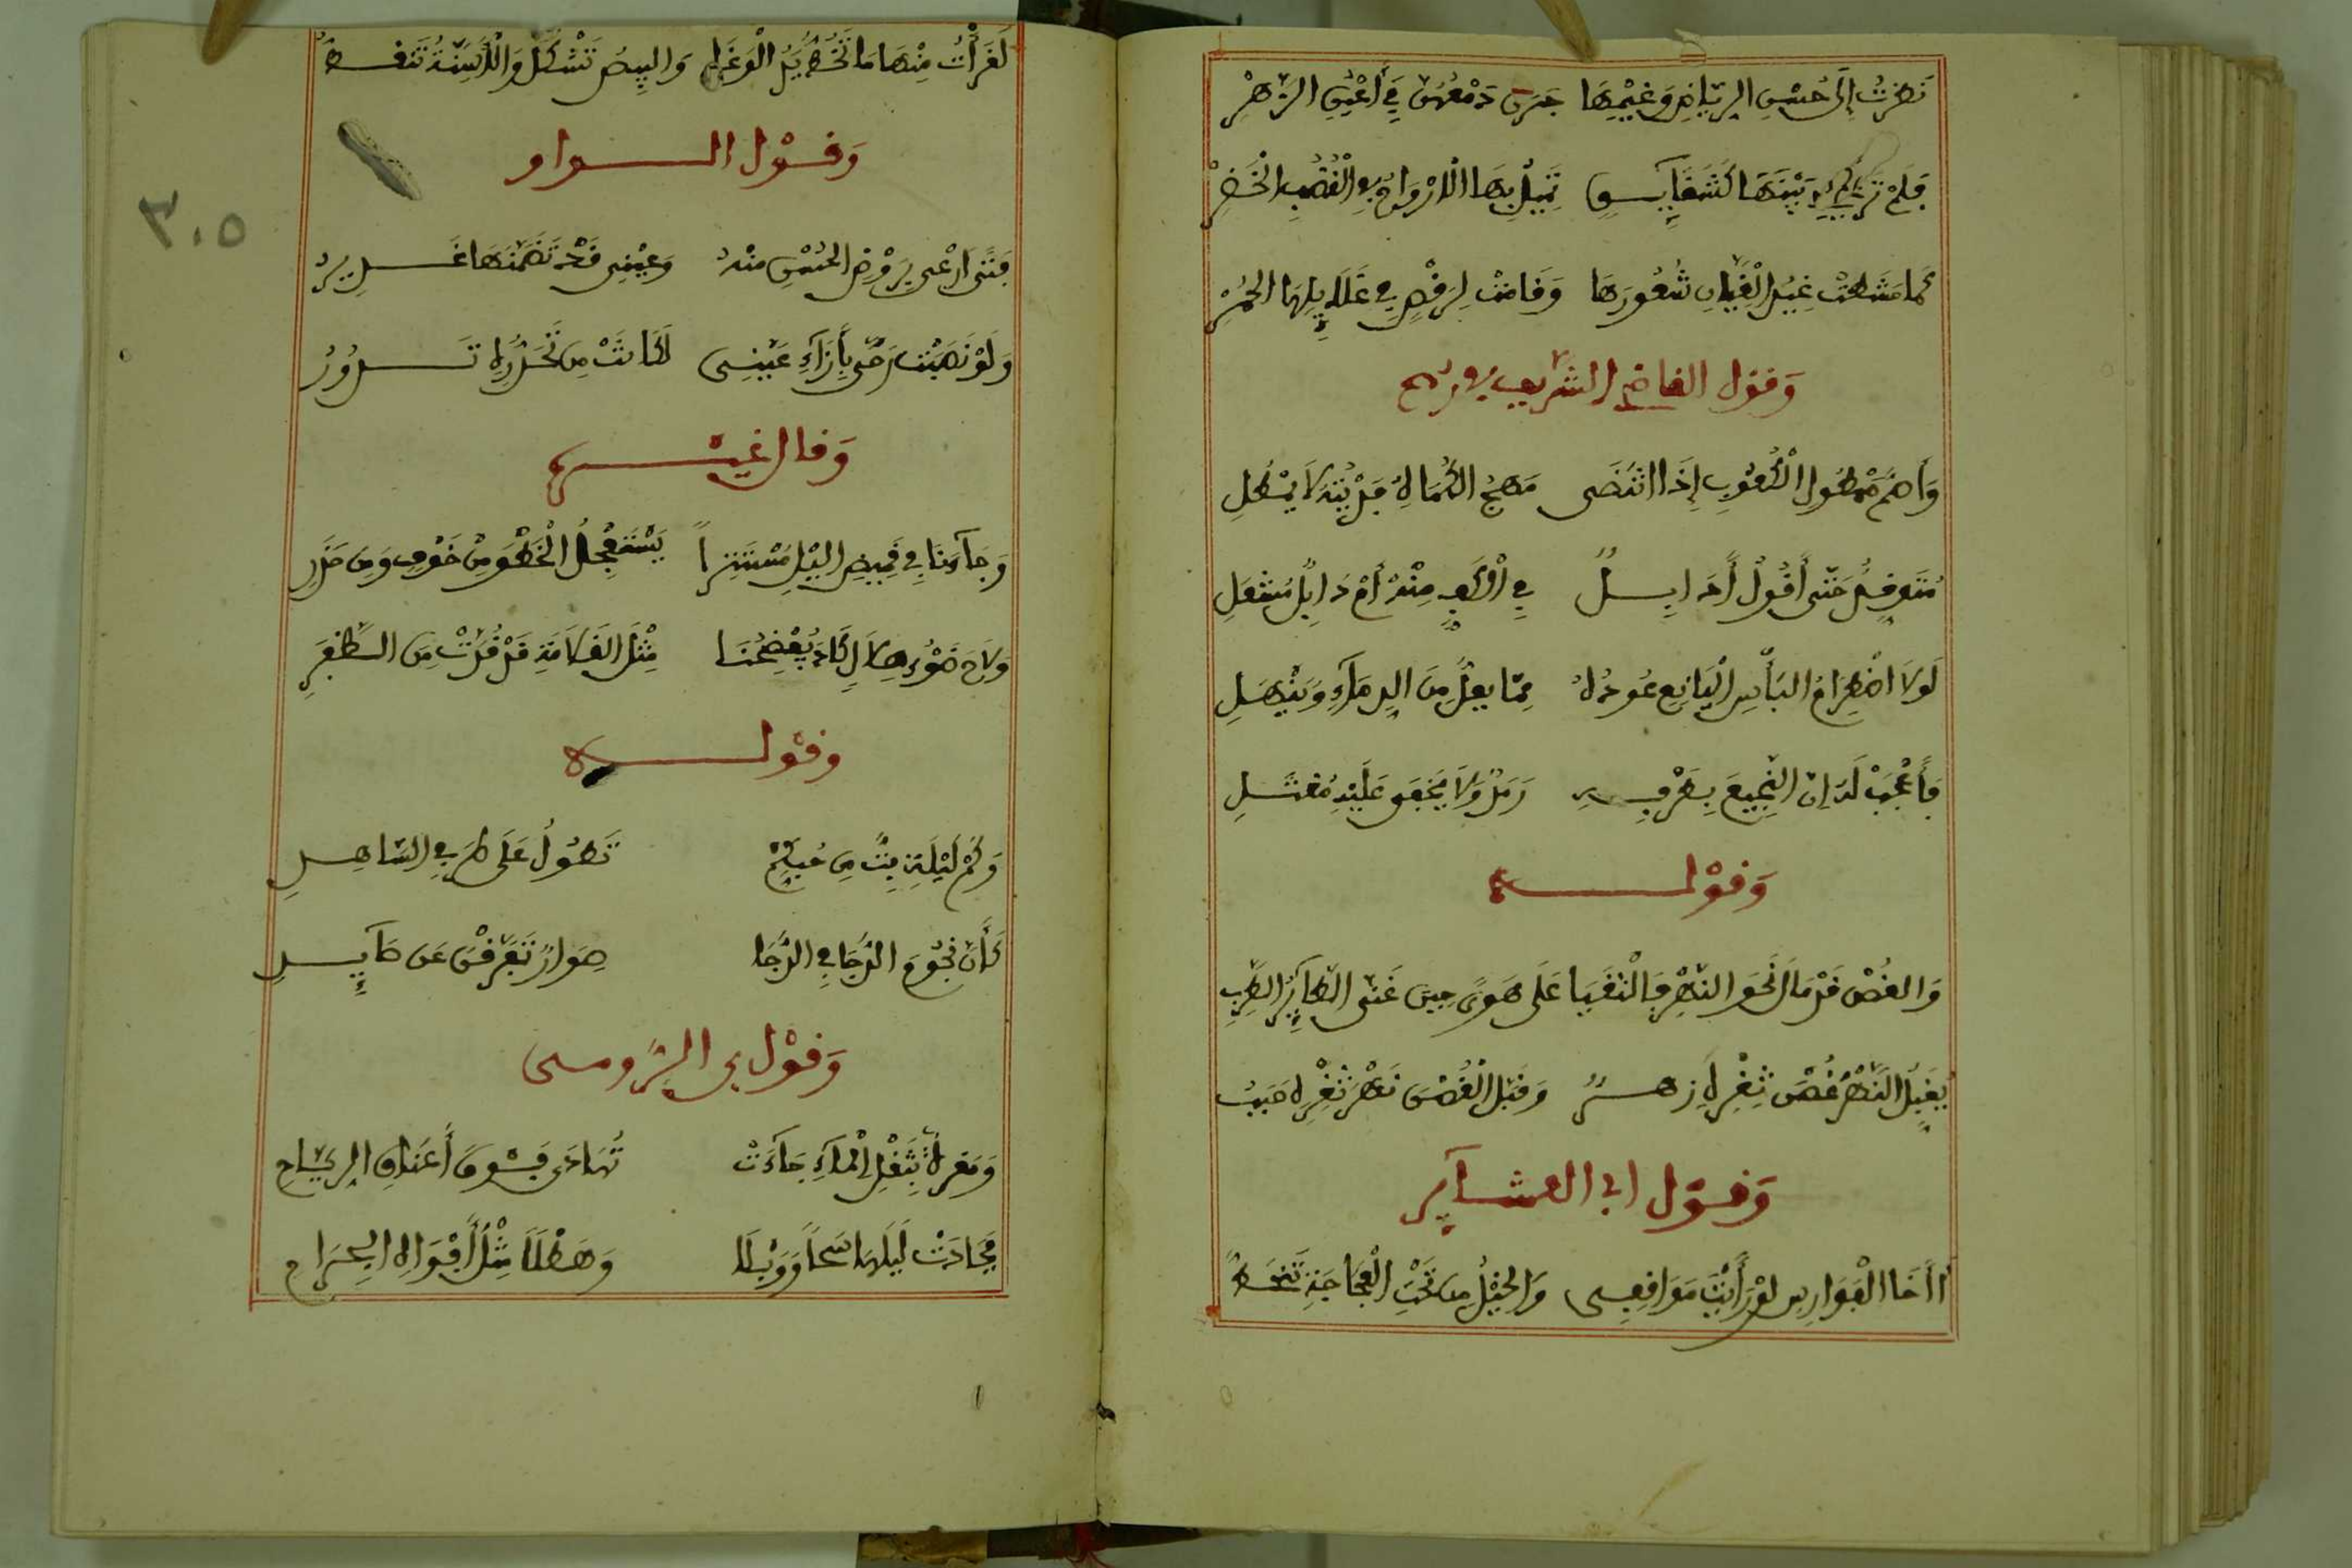 نَظَرْتُ إِلَى حُسْنِ الرِّيَاضِ وَغَيْمِهَا جَرَى دَمْعُهُنَّ فِي أَعْيُنِ الزَّهْرِ
فَلَمْ تَرَ بَيْنَهَا كَشَقَايِقٍ تَمِيلُ بِهَا الْأَرْوَاحُ فِي الْقُضُبِ الْخُضْرِ
كَمَا مَشَطَتْ غِيدُ الْقِيَانِ شُعُورَهَا وَقَامَتْ لِرَقْصٍ فِي غَلَايِلِهَا الْحُمْرِ
وَقول القاضي الشريف
وَأَصَمَّ مَمْطُولِ الْكُعُوبِ إِذَا انْتَضَى مُهَجَ الْكُمَاةِ فَدَيْنُهُ لَا يُمْطَلِ
مُتَوَقِّدٌ حَتَّى أَقُولُ أَذَابِلٌ فِي الْكَفِّ مِنْهُ أَمْ ذُبَالٌ مُشْعَلِ
لَوْلَا اضْطِرَامُ الْبَأْسِ أَيْنَعَ عُودُهُ مِمَّا يُعَلُّ مِنَ الدِّمَاءِ وَيَنْهَلِ
فَأَعْجَبْ لَهُ إِنَّ النَّجِيعَ بِطَرْفِهِ رَمَدٌ وَلَا يَخْفَى عَلَيْهِ مُقْتَلِ
وَقَوْلـــه
وَالغُصْنُ قَدْ مَالَ نَحْوَ النَّهْرِ فَالْتَقَيَا عَلَى هَوًى حِينَ غَنَّى الطَّايِرُ الطَّرِبِ
يُقَبِّلُ النَّهْرُ غُصْنٌ ثَغْرُهُ زَهَرٌ وَقَبَّلَ الْغُصْنَ نَهْرٌ ثَغْرُهُ حَبَبُ
وَقَوْل ابي العشـاير
أَأَخَا الْفَوَارِسِ لَوْ رَأَيْتَ مَوَاقِفِي وَالْخَيْلُ مِن تَحْتِ الْعَجَاجَةِ تَنْحَطُ
لَقَرَأْتَ مِنْهَا مَا تَخُطُّ يَدُ الْوَغَا وَالبِيضُ تَشْكُلُ وَالْأَسِنَّةُ تَنْقُطُ
وَقَوْل الـــواو
٣٠٥
مَتَى أَرْعَى بِرَوْضِ الحُسْنِ مِنْهُ وَعَيْنِي قَدْ تَضَمَّنَهَا غَدِيرُ
وَلَوْ نُصِبَتْ رَحًى بِإِزَاءِ عَيْنِي لَكَانَتْ مِن تَحَدُّرِهِ تَـــدُورُ
وَقال غيـــره
وَجَاءَنَا فِي قَمِيصِ اللَّيْلِ مُسْتَتِرًا يَسْتَعْجِلُ الْخَطْوَ مِنْ خَوْفٍ وَمِنْ حَذَرِ
وَلَاحَ ضَوْءُ هِلَالٍ كَادَ يَفْضَحُنَا مِثْلَ القَلَامَةِ قَدْ قُدَّتْ مِنَ الظُّفُرِ
وَقَوْلـــه
وَكَمْ لَيْلَةٍ بِتُّ مِن حُبِّكُمْ تَطُولُ عَلَى طَرَفِي السَّاهِرِ
كَأَنَّ نُجُومَ الدُّجَا فِي الدُّجَا صِوَارٌ تَفَرَّقْنَ عَن
وَقَوْل بن الـرومــى
وَمُغَرْأَةٍ بِثِقْلِ الْمَاءِ جَاءَتْ تُهَادَى فَوْقَ أَعْنَاقِ الرِّيَاحِ
فَجَادَتْ لَيْلَهَا سَحًّا وَوَبْلًا وَهَطْلًا مِثْلَ أَفْوَاهِ الجِرَاحِ